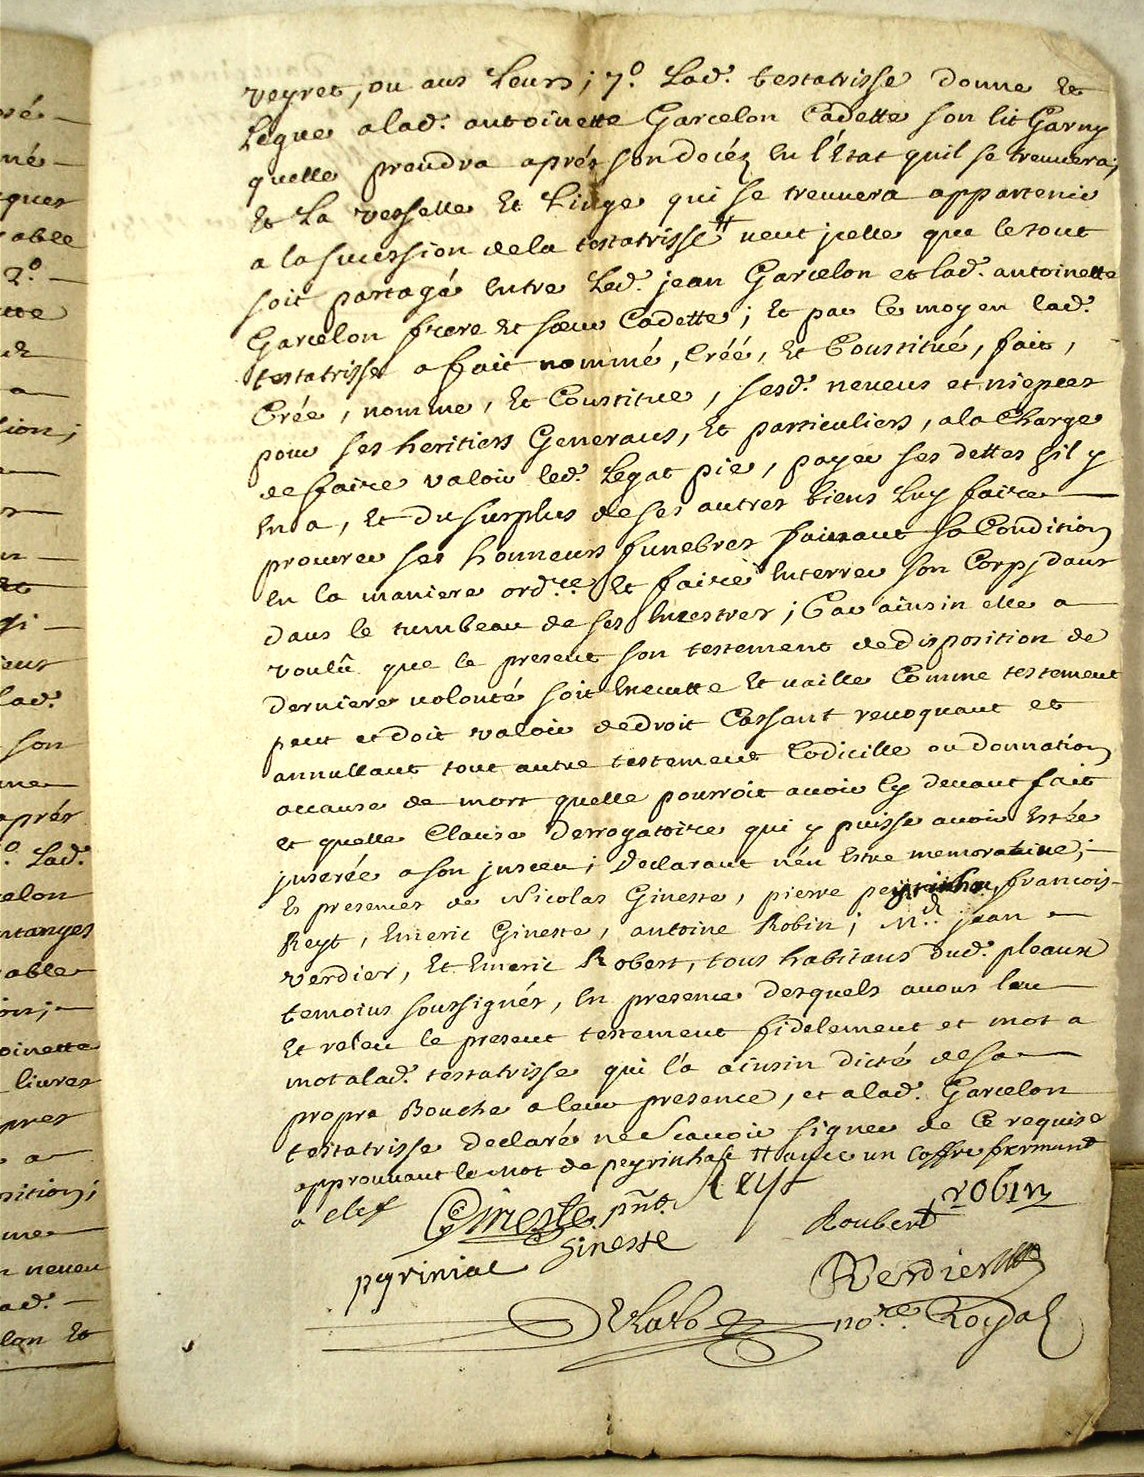 ré
né
ques
able
2.º
tte
de
a
sion;
r
n
Et
si
eur
lad.
son
me
aprés
º. Lad.
celon
ntanges
able
on;
oinette
livres
pres
a
sition;
me
n neveu
ad.
lon Et
veyret, ou aus Leurs; 7.º Lad. testatrisse donne Et
Legue a lad. antoinette Garcelon Cadette son lit Garny
quelle prendra aprés son decéz En l'Etat quil se treuvera;
Et La vesselle Et Linge qui se treuvera appartenir
a la sucession de la testatrisse # veut jcelle que le tout
soit partagé Entre Led. jean Garcelon et lad. antoinette
Garcelon frere Et sœur Cadette; Et par Ce moyen lad.
testatrisse a fait nommé, Créé, Et Constitué, fait,
Crée, nomme, Et Constitue, sesd. neveus et niepces
pour ses heritiers Generaus, Et particuliers, a la Charge
de faire valoir led. Legat pie, payer ses dettes sil y
En a, Et du surplus de ses autres biens Luy faire
procurer ses honneurs funebres suivant sa Condition
En la maniere ord.re Et faire Enterrer son Corps dans
dans le tumbeau de ses Encestres; Car ainsin elle a
voulû que le present son testement de disposition de
derniere volonté soit Executte Et vaille Comme testement
peut et doit valoir de droit Cassant revoquant et
annullant tout autre testement Codicille ou donnation
a cause de mort quelle pourroit avoir Cy devant fait
et quelle Clause derrogatoire qui y puisse avoir Estée
jnserée a son jnsceu; declarant n'en Estre memorative;
Es presences de Nicolas Gineste, pierre peyrinhac, francois
Reyt, Emeric Gineste, antoine Robin; M.e jean
verdier, Et Emeric Robert, tous habitans dud. pleaux
temoins soussignés, En presence desquels avons leu
Et releu le present testement fidelement et mot a
mot a lad. testatrisse qui l'a ainsin dicté de sa
propre Bouche a leur presence, et a lad. Garcelon
testatrisse declaré ne Scavoir signer de Ce requise
approuvant le mot de peyrinhac # avec un Coffre fermant
a clef Gineste pñt. Reyt
Roubert robin
peyriniac Gineste
Verdier
no.re Royal